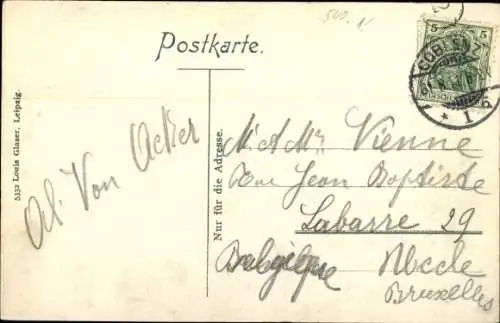 540.N
Postkarte.
5
COBLENZ
* 1 b
5332 Louis Glaser, Leipzig.
Al. Von Acker
Nur für die Adresse.
M. & Mme Vienne
Rue Jean Baptiste
Labarre 29
Belgique
Uccle
Bruxelles